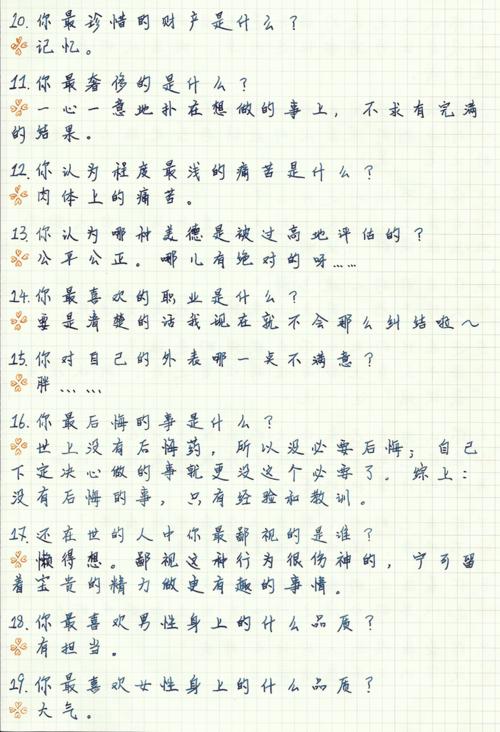 10.你最珍惜的财产是什么?
记忆。
11.你最奢侈的是什么?
一心一意地扑在想做的事上,不求有完满
的结果。
12.你认为程度最浅的痛苦是什么?
肉体上的痛苦。
13.你认为哪种美德是被过高地评估的?
公平公正。哪儿有绝对的呀……
14.你最喜欢的职业是什么?
要是清楚的话我现在就不会那么纠结啦~
15.你对自己的外表哪一点不满意?
胖……
16.你最后悔的事是什么?
世上没有后悔药,所以没必要后悔;自己
下定决心做的事就更没这个必要了。综上:
没有后悔的事,只有经验和教训。
17.还在世的人中你最鄙视的是谁?
懒得想。鄙视这种行为很伤神的,宁可留
着宝贵的精力做更有趣的事情。
18.你最喜欢男性身上的什么品质?
有担当。
19.你最喜欢女性身上的什么品质?
大气。